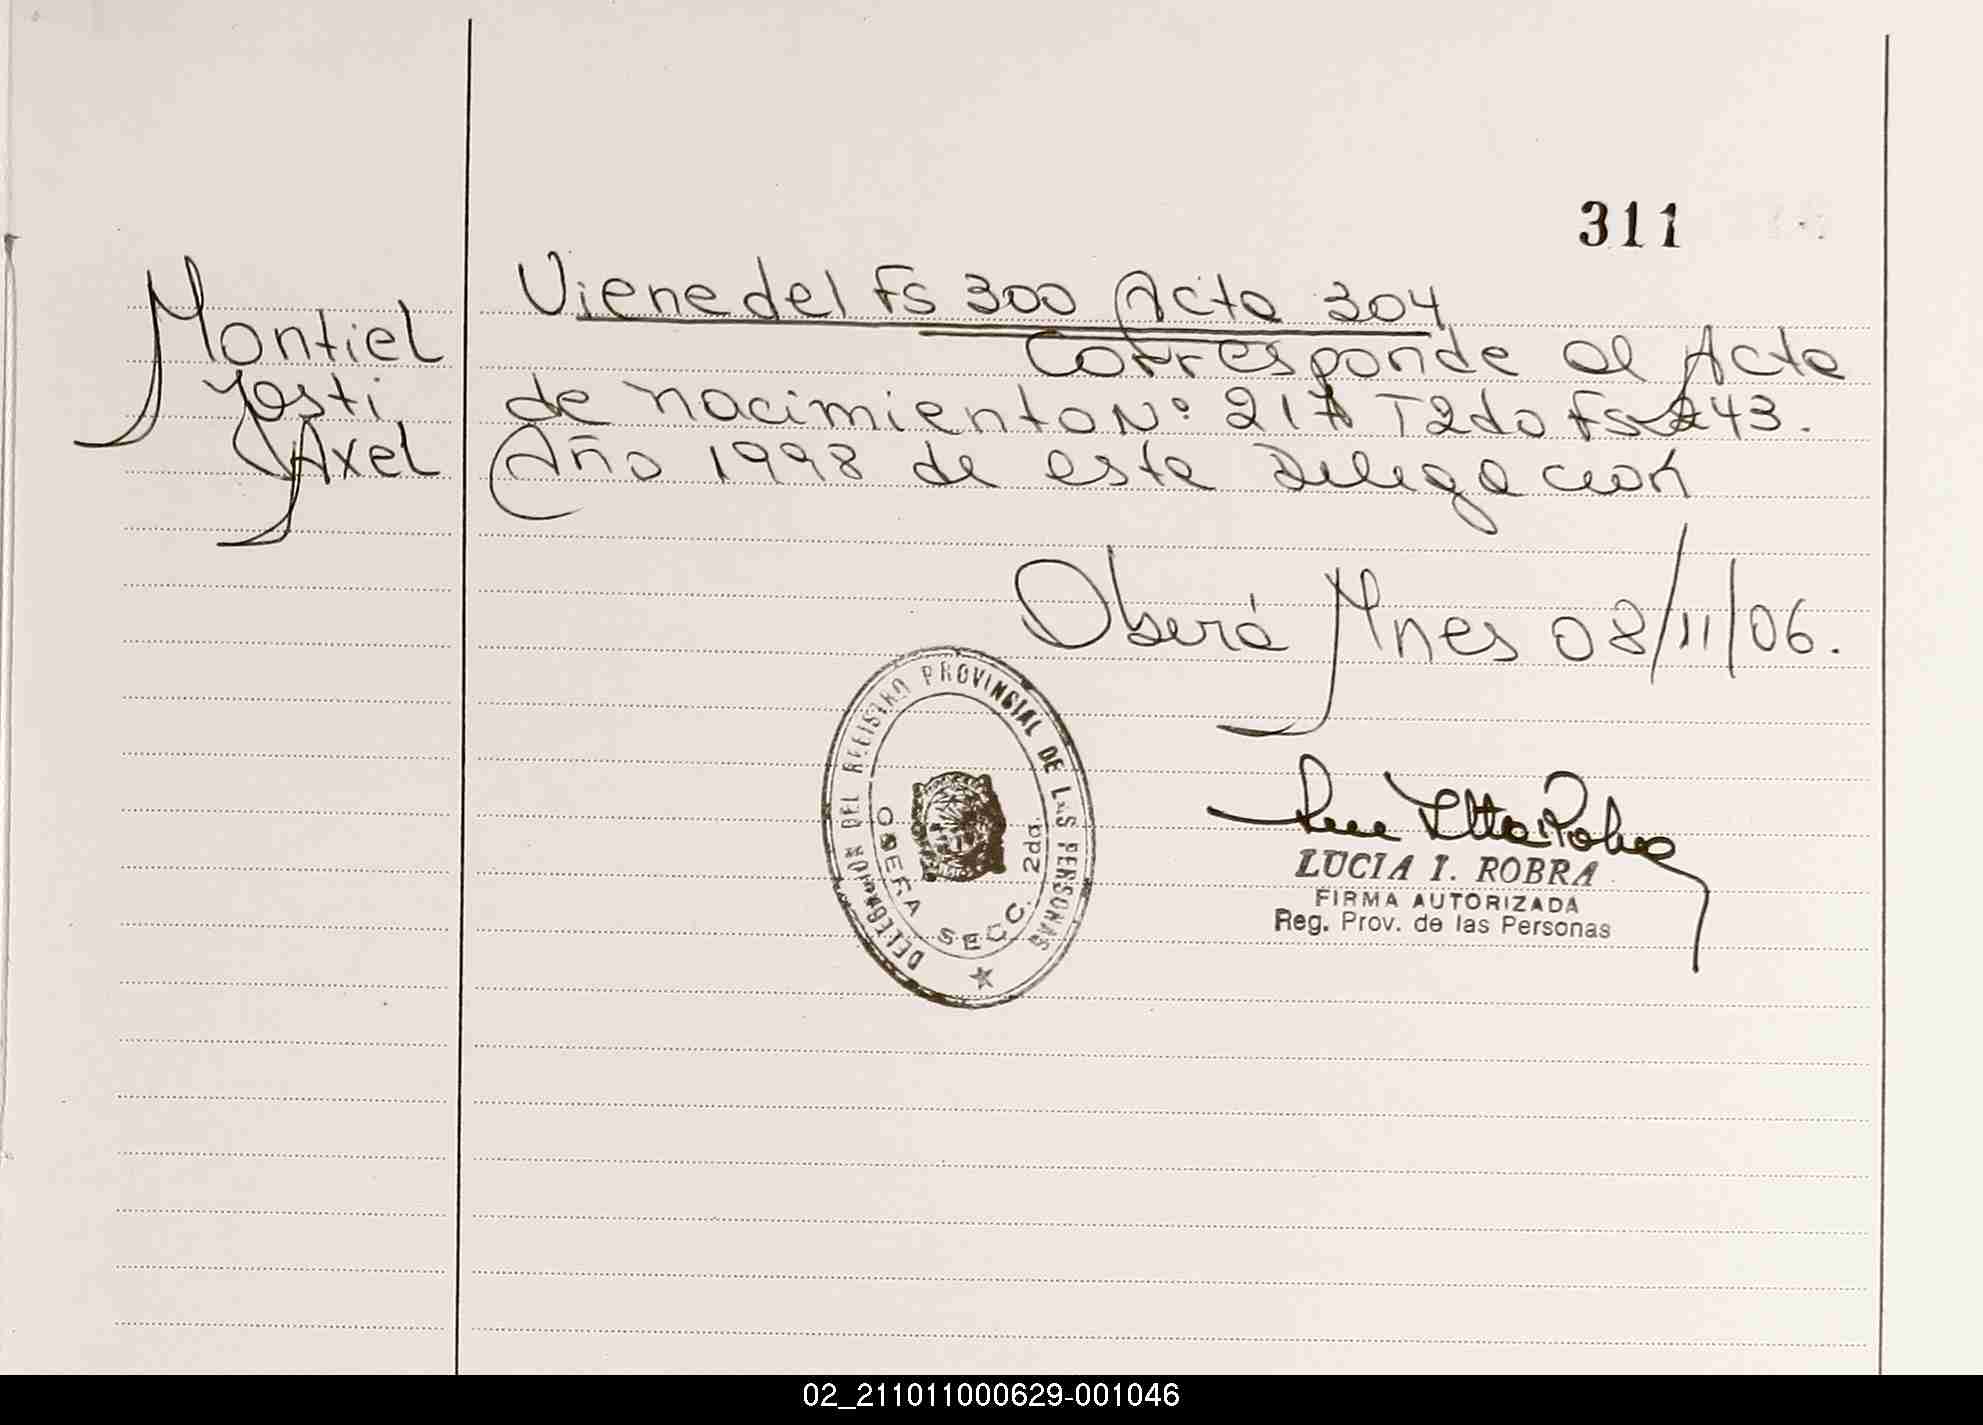 311
Viene del Fs 300 Acta 304
Montiel
Corresponde al Acta
Yosti
de nacimiento Nº 217 T2do Fs 243.
Axel
Año 1998 de esta Delegacion
Oberá Mnes 08/11/06.
DELEGACION DEL REGISTRO PROVINCIAL DE LAS PERSONAS
OBERA SECC. 2da.
LUCIA I. ROBRA
FIRMA AUTORIZADA
Reg. Prov. de las Personas
02_211011000629-001046